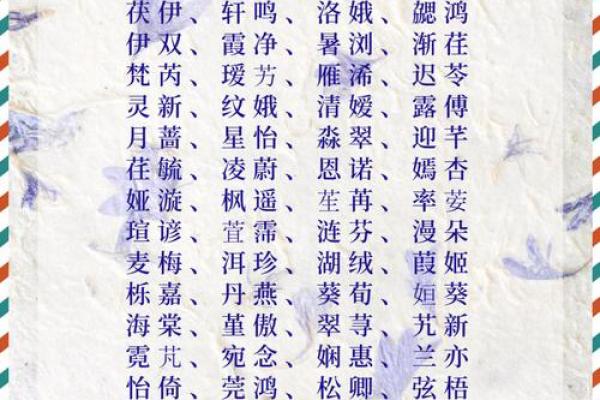 茯伊、轩鸣、洛娥、勰鸿
伊双、霞净、暑浏、渐荏
梵芮、瑷芳、雁浠、迟苓
灵新、纹娥、清嫒、露傅
月蔷、星怡、淼翠、迎芊
荏毓、凌蔚、恩诺、嫣杏
娅漩、枫遥、苼苒、率荽
瑄谚、萓霈、涟芬、漫朵
麦梅、洱珍、湖绒、葭姬
栎嘉、丹燕、葵荀、姮葵
海棠、堇傲、翠荨、艽新
霓芃、宛念、娴惠、兰亦
怡倚、莞鸿、松卿、弦梧